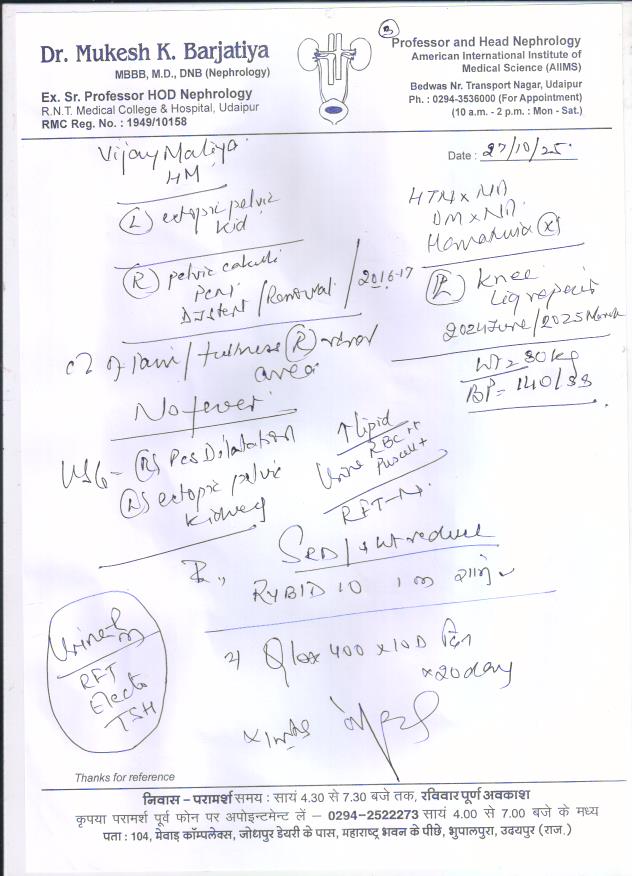 Dr. Mukesh K. Barjatiya
MBBB, M.D., DNB (Nephrology)
Ex. Sr. Professor HOD Nephrology
R.N.T. Medical College & Hospital, Udaipur
RMC Reg. No. : 1949/10158
Professor and Head Nephrology
American International Institute of
Medical Science (AIIMS)
Bedwas Nr. Transport Nagar, Udaipur
Ph. : 0294-3536000 (For Appointment)
(10 a.m. - 2 p.m. : Mon - Sat.)
Date : 27/10/25
Vijay
HM
(L) ectopic pelvic
Kid
(R) pelvic calculi
DJ stent / Removal / 2016-17
fullness (R)
area
No fever
HTN x
DM x
Hematuria (x)
Knee
Lig repair
2024 June / 2025 March
Wt = 80 kg
BP = 140/88
USG - (R) PCS Dilatation
(L) ectopic pelvic
kidney
↑ lipid
Urine RBC ++
Pus cell +
RFT - N
SRD / wt reduce
10
400 x 10D
x 20 day
Urine
RFT
Electo
TSH
Thanks for reference
निवास – परामर्श समय : सायं 4.30 से 7.30 बजे तक, रविवार पूर्ण अवकाश
कृपया परामर्श पूर्व फोन पर अपोइन्टमेन्ट लें – 0294-2522273 सायं 4.00 से 7.00 बजे के मध्य
पता : 104, मेवाड़ कॉम्पलेक्स, जोधपुर डेयरी के पास, महाराष्ट्र भवन के पीछे, भुपालपुरा, उदयपुर (राज.)